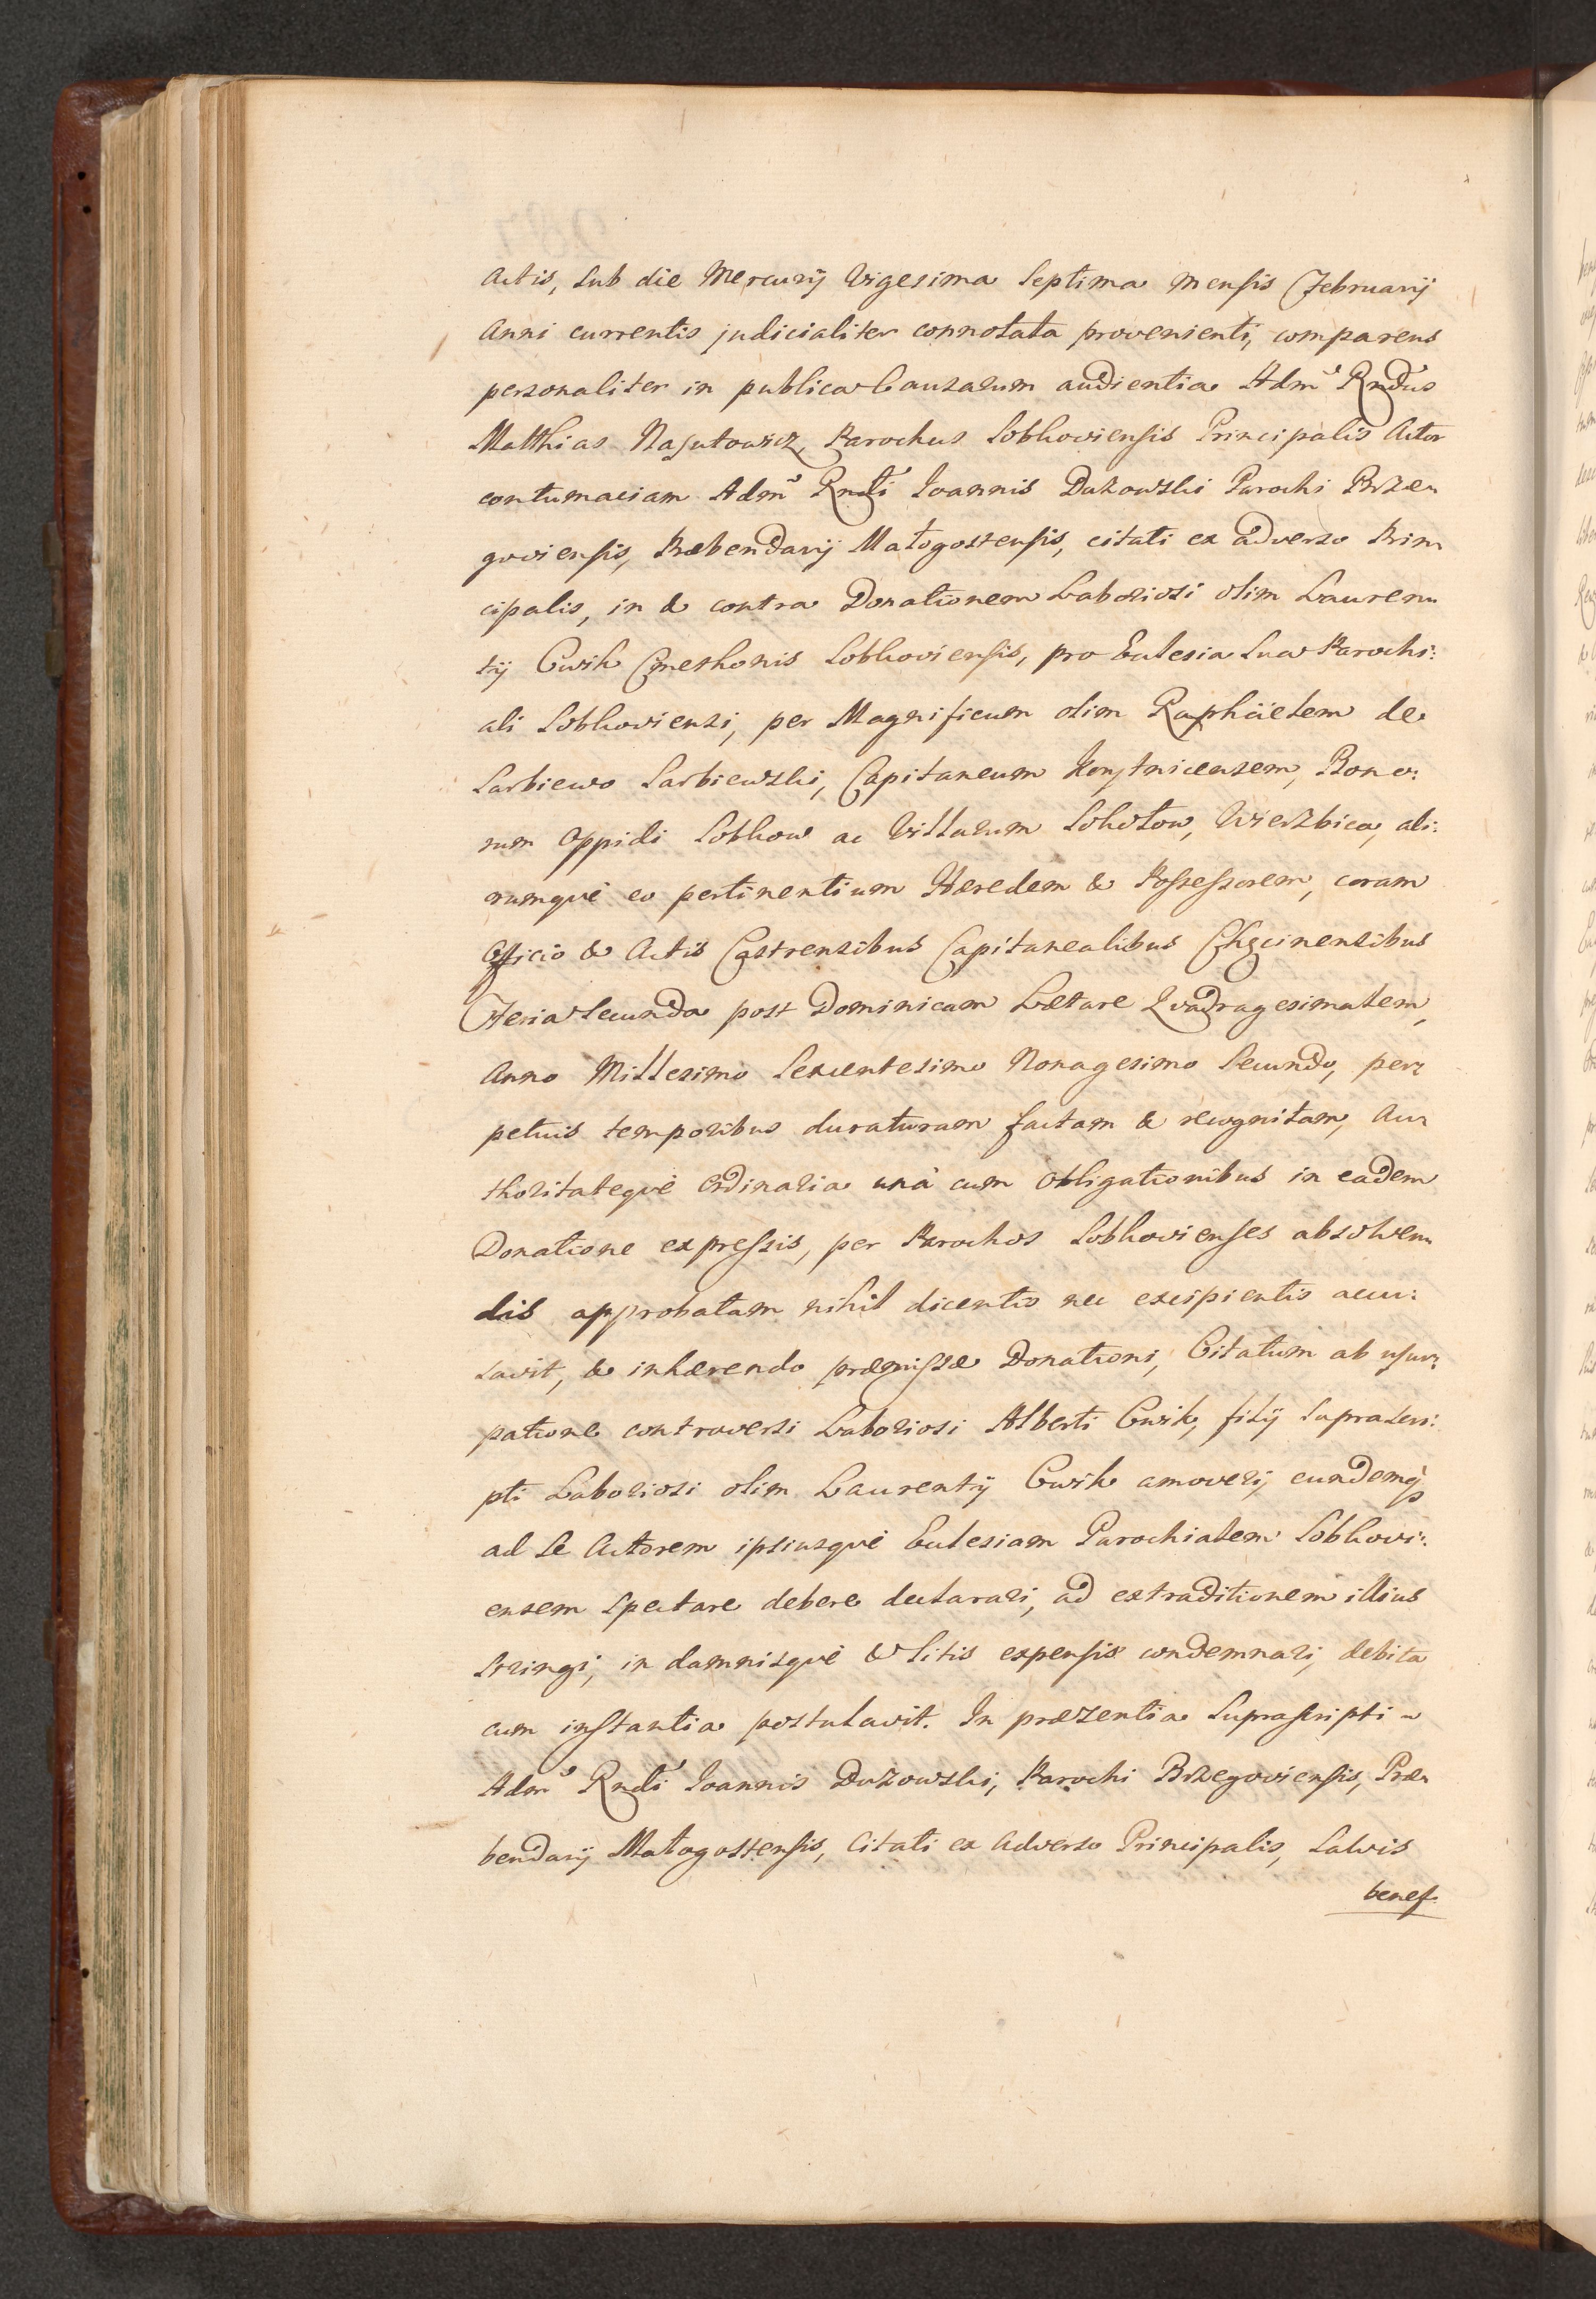 Actis, sub die Mercurij Vigesima Septima Mensis Februarij
Anni currentis judicialiter connotata provenienti, comparens
personaliter in publica Causarum audientia Adm Rndus
Matthias Najutowicz, Parochus Sobkoviensis Principalis Actor
contumaciam Adm Rndi Joannis Duzowski Parochi Brze„
goviensis, Præbendarij Małogostensis, citati ex adverso Prin„
cipalis, in & contra Donationem Laboriosi olim Lauren„
tij Cwik Cmethonis Sobkoviensis, pro Ecclesia sua Parochi:
ali Sobkoviensi, per Magnificum olim Raphäelem de
Sarbiewo Sarbiewski, Capitaneum Kcyniensem, Bono:
rum Oppidi Sobkow ac Villarum Sokołow, Wierzbica, ali:
rumqué eo pertinentium Hæredem & Possessorem, coram
Officio & Actis Castrensibus Capitanealibus Chęcinensibus
Feria Secunda post Dominicam Lætare Qvadragesimalem,
Anno Millesimo Sexcentesimo Nonagesimo Secundo, per„
petuis temporibus duraturam factam & recognitam, Au„
thoritateqvé Ordinaria unà cum Obligationibus in eadem
Donatione expressis, per Parochos Sobkovienses absolven„
dis approbatam nihil dicentis nec excipientis accu:
savit, & inhærendo præmissæ Donationi, Citatum ab usur:
patione controversi Laboriosi Alberti Cwik, filij suprascri:
pti Laboriosi olim Laurentij Cwik amoveri, eundemq́
ad se Actorem ipsiusqvé Ecclesiam Parochialem Sobkovi:
ensem spectare debere declarari, ad extraditionem illius
stringi, in damnisqvé & litis expensis condemnari, debita
cum instantia postulavit. In præsentia suprascripti „
Adm Rndi Joannis Duzowski, Parochi Brzegoviensis, Præ„
bendarij Małogostensis, Citati ex Adverso Principalis, Salvis
benef.